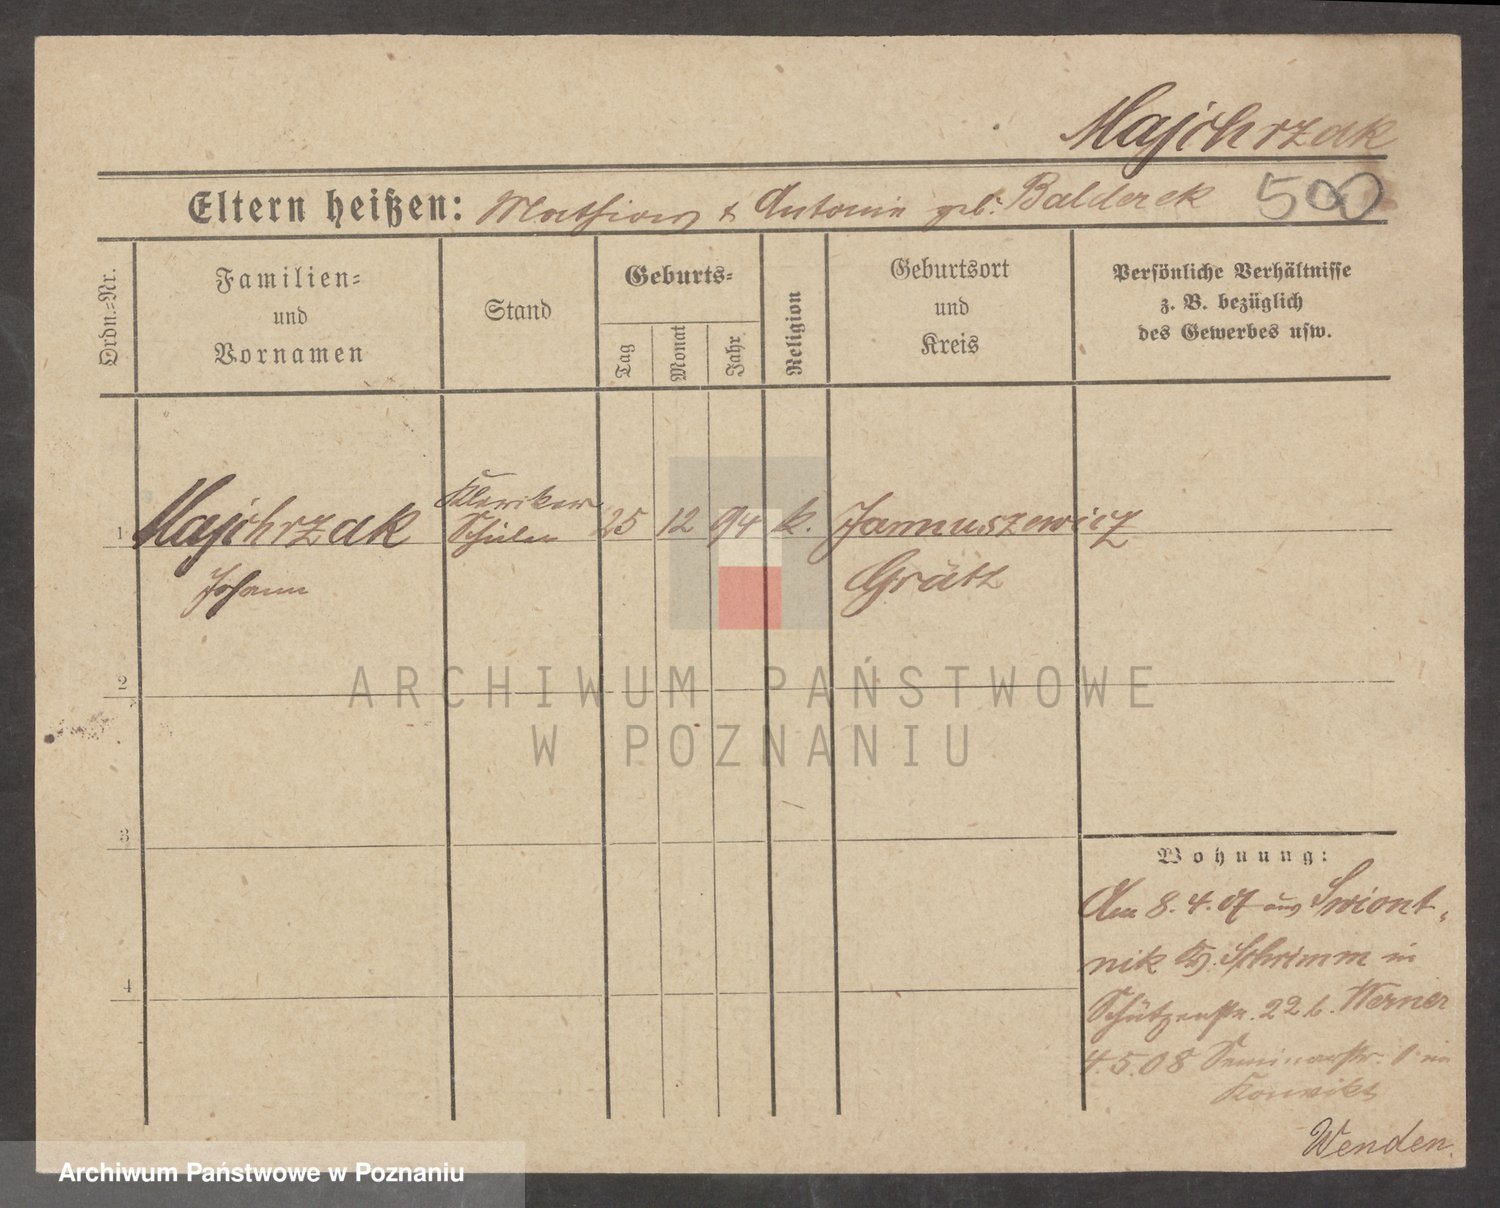 Majchrzak
Eltern heißen: Mathias & Antonie geb. Balderek
500
Ordn.-Nr.
Familien-
und
Vornamen
Stand
Geburts-
Tag
Monat
Jahr
Religion
Geburtsort
und
Kreis
Persönliche Verhältnisse
z. B. bezüglich
des Gewerbes usw.
1 Majchrzak Kleriker Schüler 25 12 94 k. Januszewicz
Johann Grätz
2
3
4
Wohnung:
Am 8.4.07 aus Swiont-
nik Kr. Schrimm in
Schützenstr. 22 b. Werner
4.5.08 Seminarstr. im
Konvikt
Wenden.
ARCHIWUM PAŃSTWOWE
W POZNANIU
Archiwum Państwowe w Poznaniu